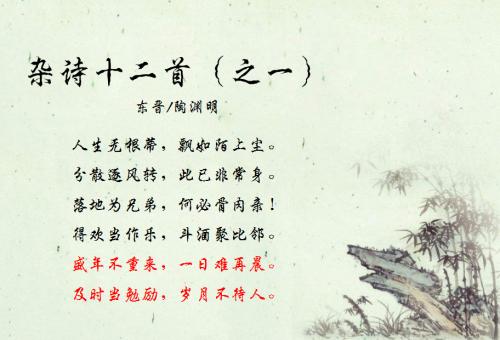 杂诗十二首{之一}
东晋/陶渊明
人生无根蒂，飘如陌上尘。
分散逐风转，此已非常身。
落地为兄弟，何必骨肉亲！
得欢当作乐，斗酒聚比邻。
盛年不重来，一日难再晨。
及时当勉励，岁月不待人。